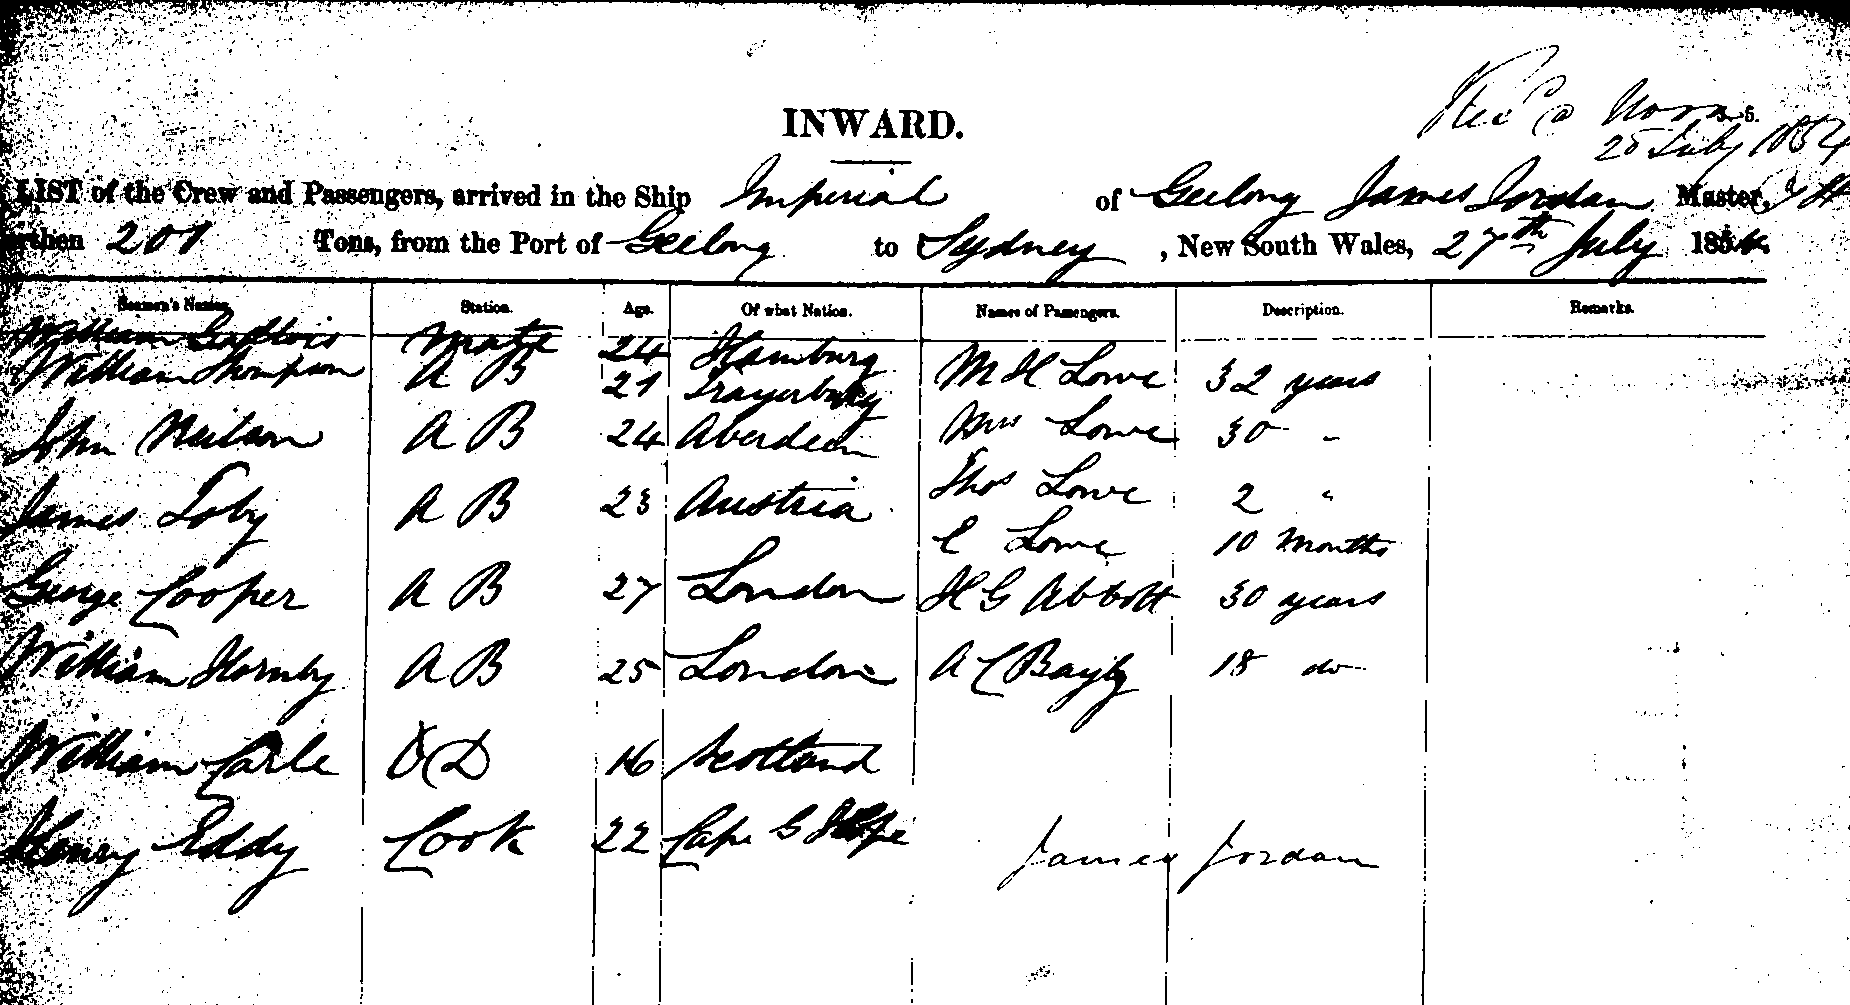 Rec'd Noon
28 July 1854
INWARD.
LIST of the Crew and Passengers, arrived in the Ship Imperial of Geelong James Jordan Master,
rthen 201 Tons, from the Port of Geelong to Sydney, New South Wales, 27th July 1854.
Seamen's Names. Station. Age. Of what Nation. Names of Passengers. Description. Remarks.
William Mate 24 Hamburg
William Thompson A B 21 M H Lowe 32 years
John Neilson A B 24 Aberdeen Mrs Lowe 30 "
James Toby A B 23 Austria Thos Lowe 2 "
E Lowe 10 Months
George Cooper A B 27 London H G Abbott 30 years
William Hornby A B 25 London A C Bayly 18 do
William Carle O D 16 Scotland
Henry Eddy Cook 22 Cape G Hope
James Jordan